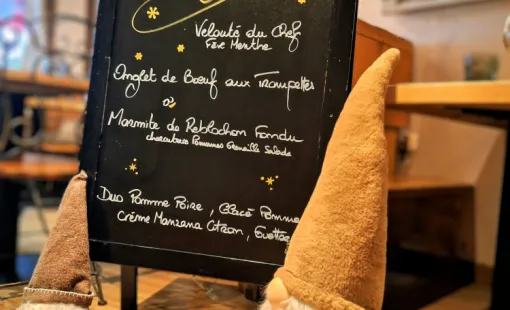 Velouté du Chef
Fève Menthe
Onglet de Bœuf aux Trompettes
ou
Marmite de Reblochon Fondu
charcuteries Pommes Grenaille Salade
Duo Pomme Poire, Glacé Pomme
Crème Manzana Citron,